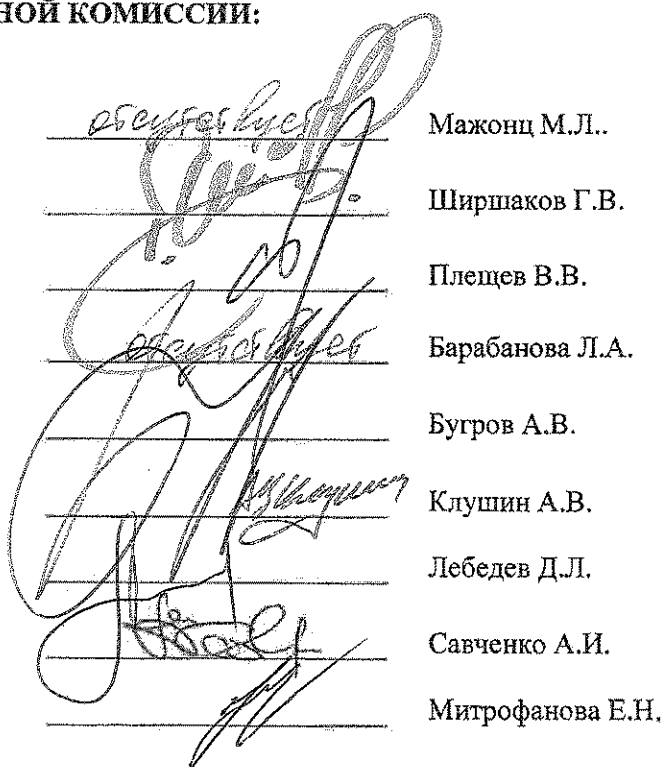 НОЙ КОМИССИИ:
отсутствует Мажонц М.Л..
Ширшаков Г.В.
Плещев В.В.
отсутствует Барабанова Л.А.
Бугров А.В.
Клушин А.В.
Лебедев Д.Л.
Савченко А.И.
Митрофанова Е.Н.